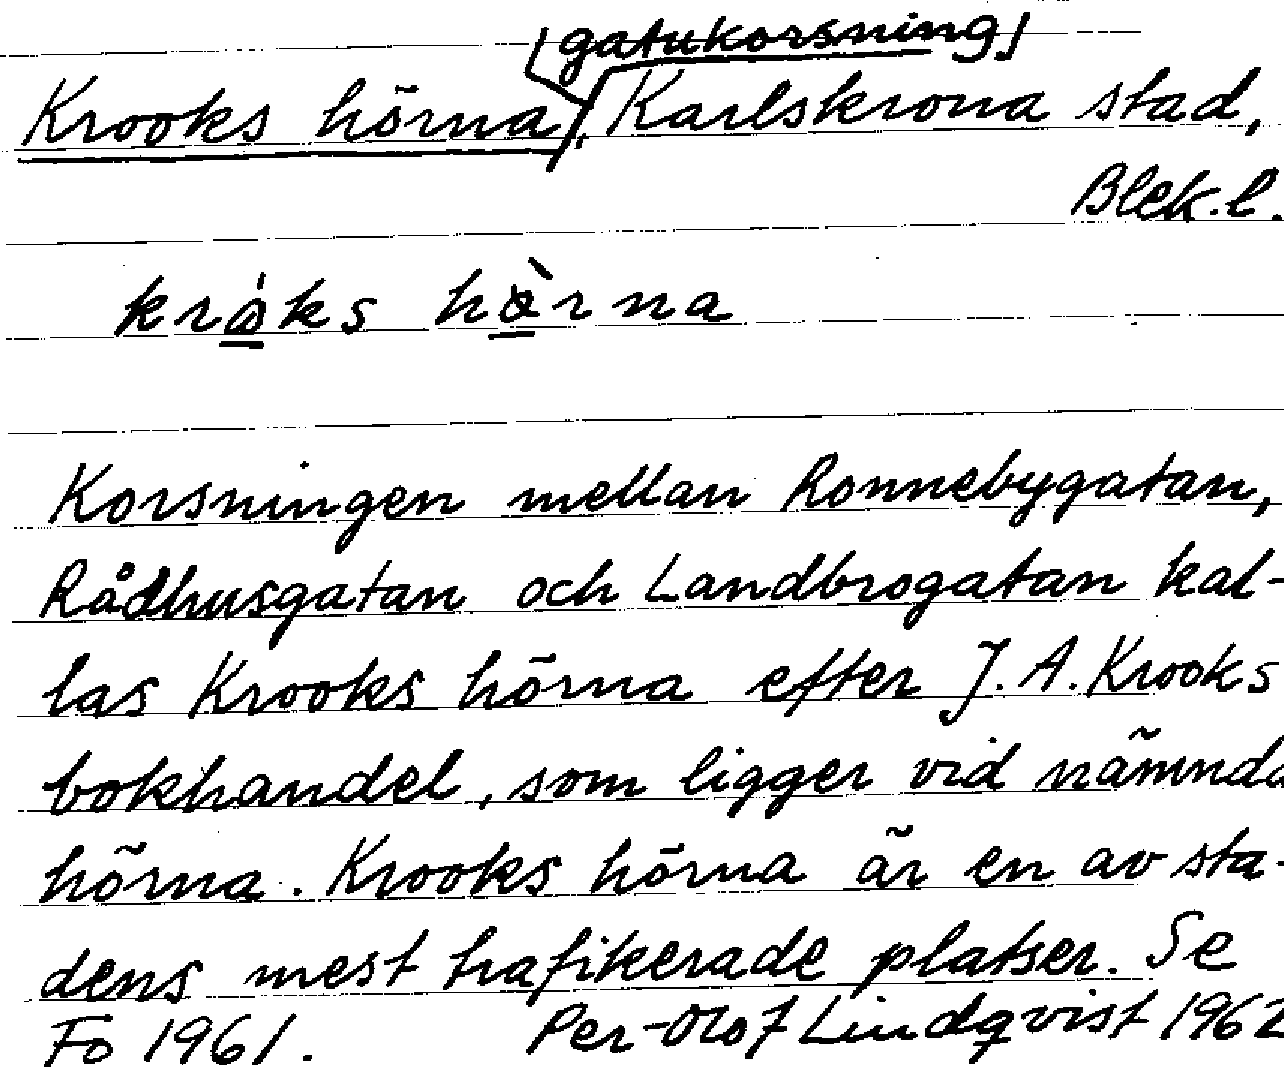 [gatukorsning]
Krooks hörna, Karlskrona stad,
Blek.l.
kråks hörna
Korsningen mellan Ronnebygatan,
Rådhusgatan och Landbrogatan kal-
las Krooks hörna efter J. A. Krooks
bokhandel, som ligger vid nämnda
hörna. Krooks hörna är en av sta-
dens mest trafikerade platser. Se
Fo 1961. Per-Olof Lindqvist 1962